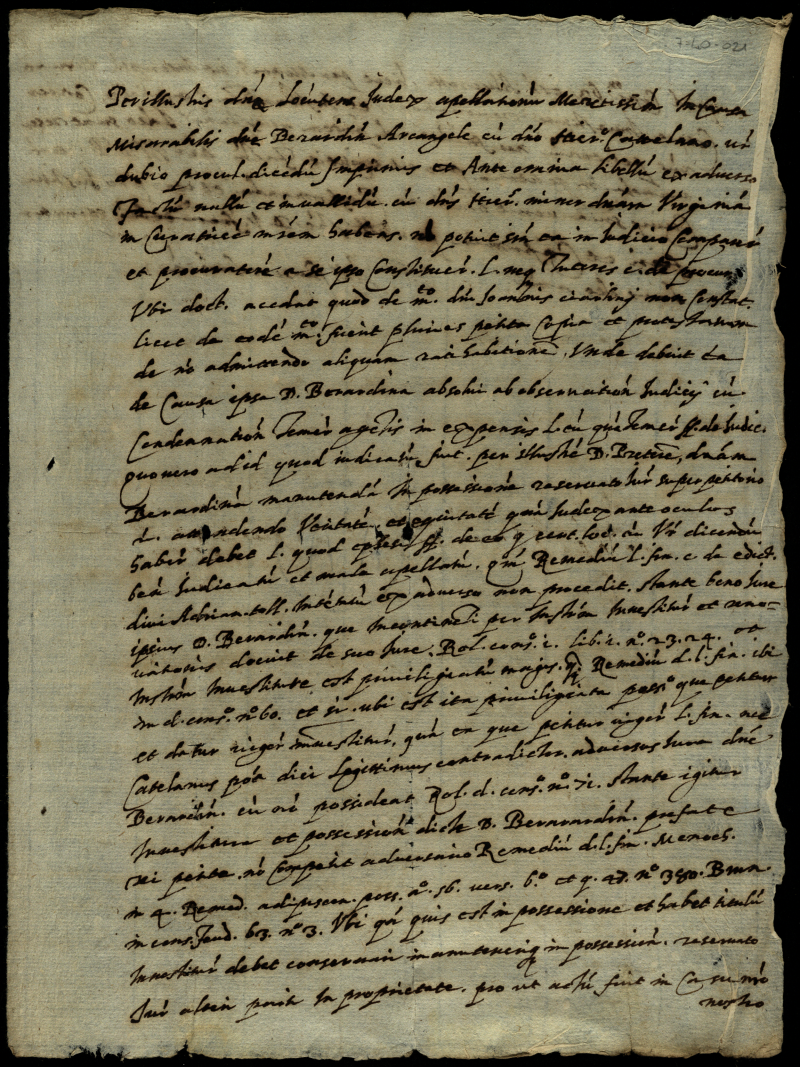 7-60-021
Perillustris dne locutens Judex apellationu Meretissim In Causa
Miserabilis dne Berardin Arcangele cu dno Hier.o Catelano. ut
dubio procul dicedu Imprimis et Ante omnia libellu ex adverso
factu nullu et invallidu. cu dns Hier. minor dnam Virginia
in Curatrice mrem habens. no potuit ita in Iudicio Comparer
et procuratore a se ipso Constituer. L. neq Tutores c. de procur
Ubi doct. accedat quod de m.to dni Joannis non Constat.
licet de eode m.to fuerit pluries petita Copia et protestatum
de no admittendo aliquam rati habitione, Unde debuit ea
de Causa ipsa D. Berardina absolui ab observation Iudicij cu
Condennation Temer agetis in expensis L. cu que Temer ff. de Iudic.
quo vero ad id quod iudicatu fuit per illustre D. Pretore, dnam
Berardina manutenda In possessione reservato iur super petitorio
d. attendendo Veritate, et equitate qua Judex ante oculos
haber debet L. quod ff. de eo q cert. loc. cu Ur dicendu
bea Iudicatu et male apellatu. qm Remediu L. fin. c. de edict.
divi Adrian. toll. Intetatu ex adverso non procedit. stante bono Iure
ipsius D. Berardin. que Incontineti per Instrm Investitur et reno-
vationis docuit de suo Iure. Rol. cons.o i. lib. i. n.o 23.24. et
Instrm Investiture est priviligiatu magis. q Remediu d. l. fin. ibi
in d. cons.o n.o 60. et ir. ubi est ita priviligiata poss.o que petitur
et datur vigor Investitur, qua ea que petitur vigor l. fin. nec
Catelanus pot dici legittimus contradictor. adversus Iura dne
Berardin. cu no possideat Rol. d. cons.o n.o 71. stante igitur
Investitura et possession dicte D. Beravardin. prefate
rei petite. no Competit adversario Remediu d. l. fin. Menoch.
in 4. Remed. adipiscen. poss. n.o 56. vers. 6.o et q. 47. n.o 380. Brun.
in cons. feud. 63. n.o 3. Ubi qn quis est in possessione et habet titulu
Investitur debet conservari in possession. reservato
Iur alteri parti In proprietate. pro ut actu fuit in Casu nro
nostro